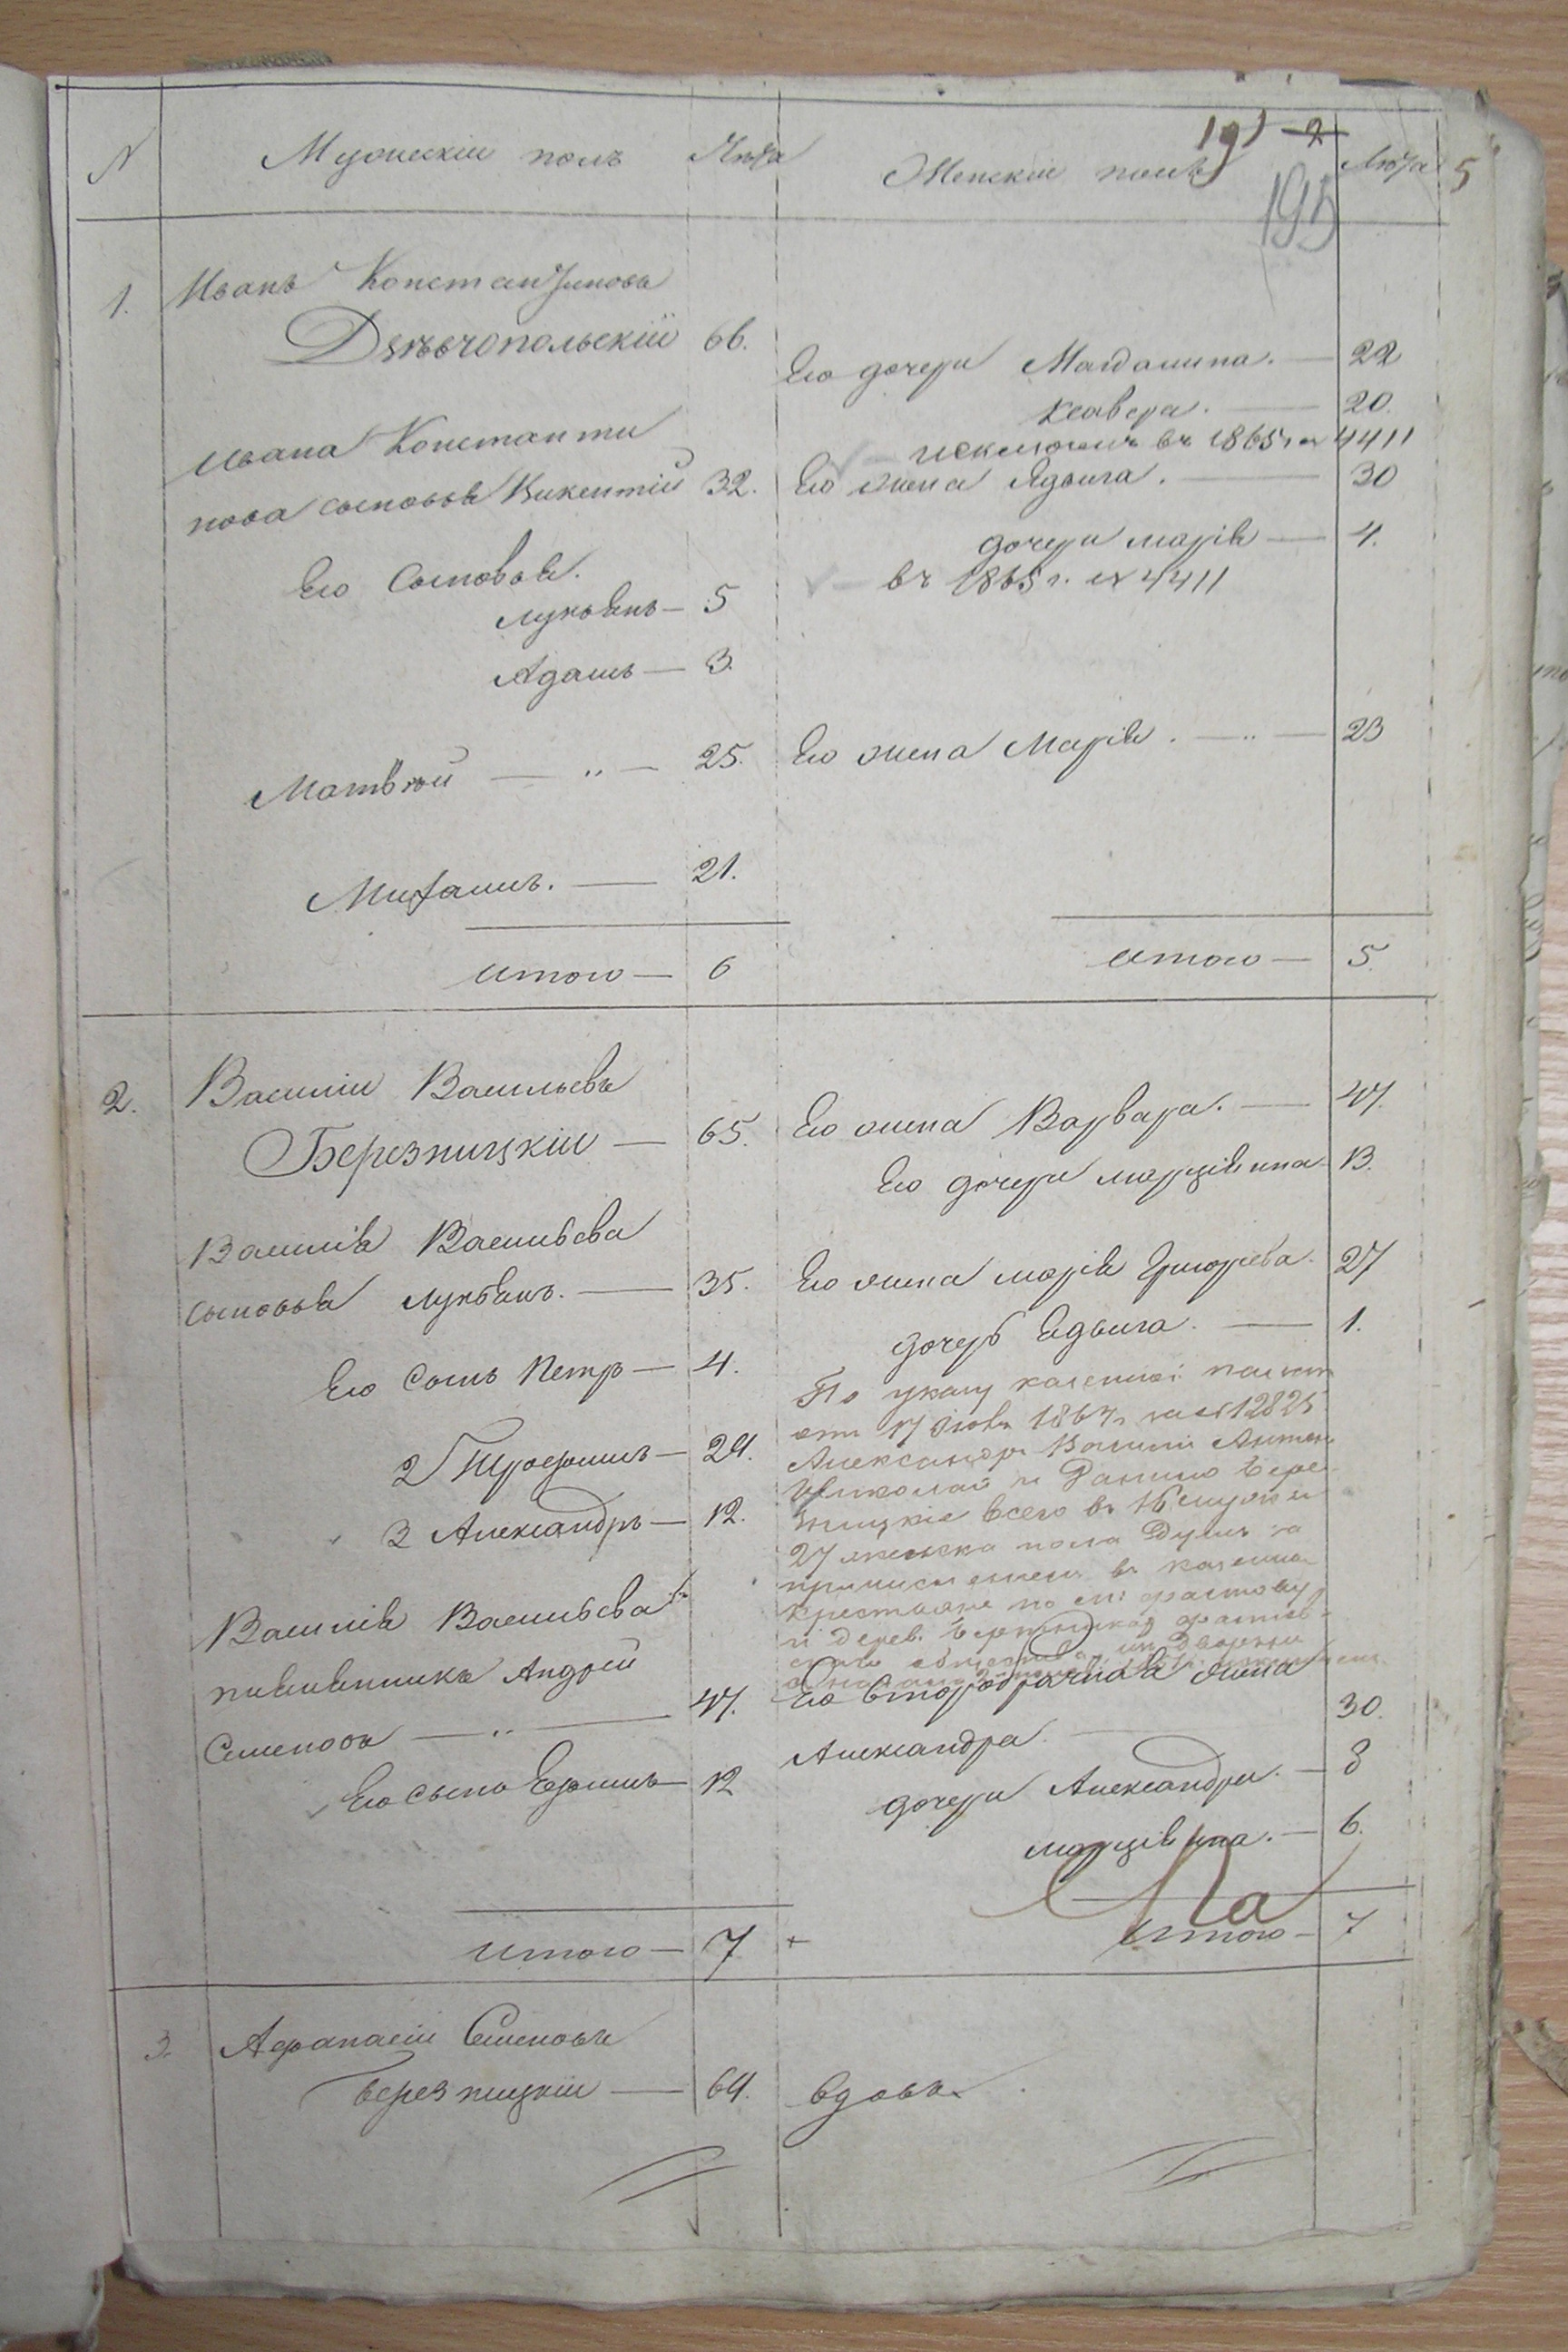 N Мужескій полъ Лѣта Женскій полъ Лѣта 5
191 2
195
1. Иванъ Константиновъ
Дзѣвчопольскій 66.
Его дочери Магдалина. — 22
Ксавера. — 20.
исключен въ 1865 г № 4411
Ивана Константи
нова сыновья Викентій 32. Его жена Ядвига. — 30
дочери марія — 4.
въ 1865 г. № 4411
Его Сыновья.
лукьянъ — 5
Адамъ — 3.
Матвѣй — " — 25. Его жена Марія. — " — 23
Михаилъ. — 21.
итого — 6 итого — 5.
2. Василій Васильевъ
Березницкій — 65. Его жена Варвара. — 47.
Его дочери марціянна 13.
Василія Васильева
сыновья лукьянъ. — 35. Его жена марія Григорьева. 27
дочерь Ядвига. — 1.
Его Сынъ Петръ — 4.
По указу казенной палаты
отъ 17 1864 г за № 12825
Александръ Василій Антонъ
Николай и Данило Бере
зницкіе всего въ 18 мужска и
27 женска пола душъ за
въ казенные
крестьяне по
и дерев.
2 Трофимъ — 24.
3 Александръ — 12.
Василія Васильева
племянникъ Андрей
Семеновъ — " — 47. Его второбрачная жена
Александра. — 30.
Его сынъ Ефимъ — 12 дочери Александра. — 8
марціянна. — 6.
На
итого — 7 + итого — 7
3. Афанасій Семеновъ
Березницкій — 64. вдовъ.